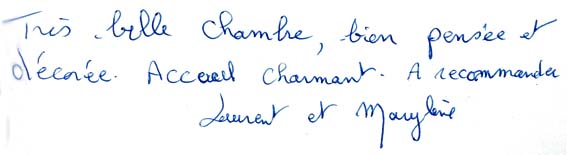 Très belle chambre, bien pensée et
décorée. Accueil charmant. A recommander
Laurent et Maryline